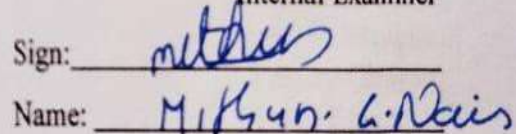 Internal Examiner
Sign:
Name: Mithun. G. Nair